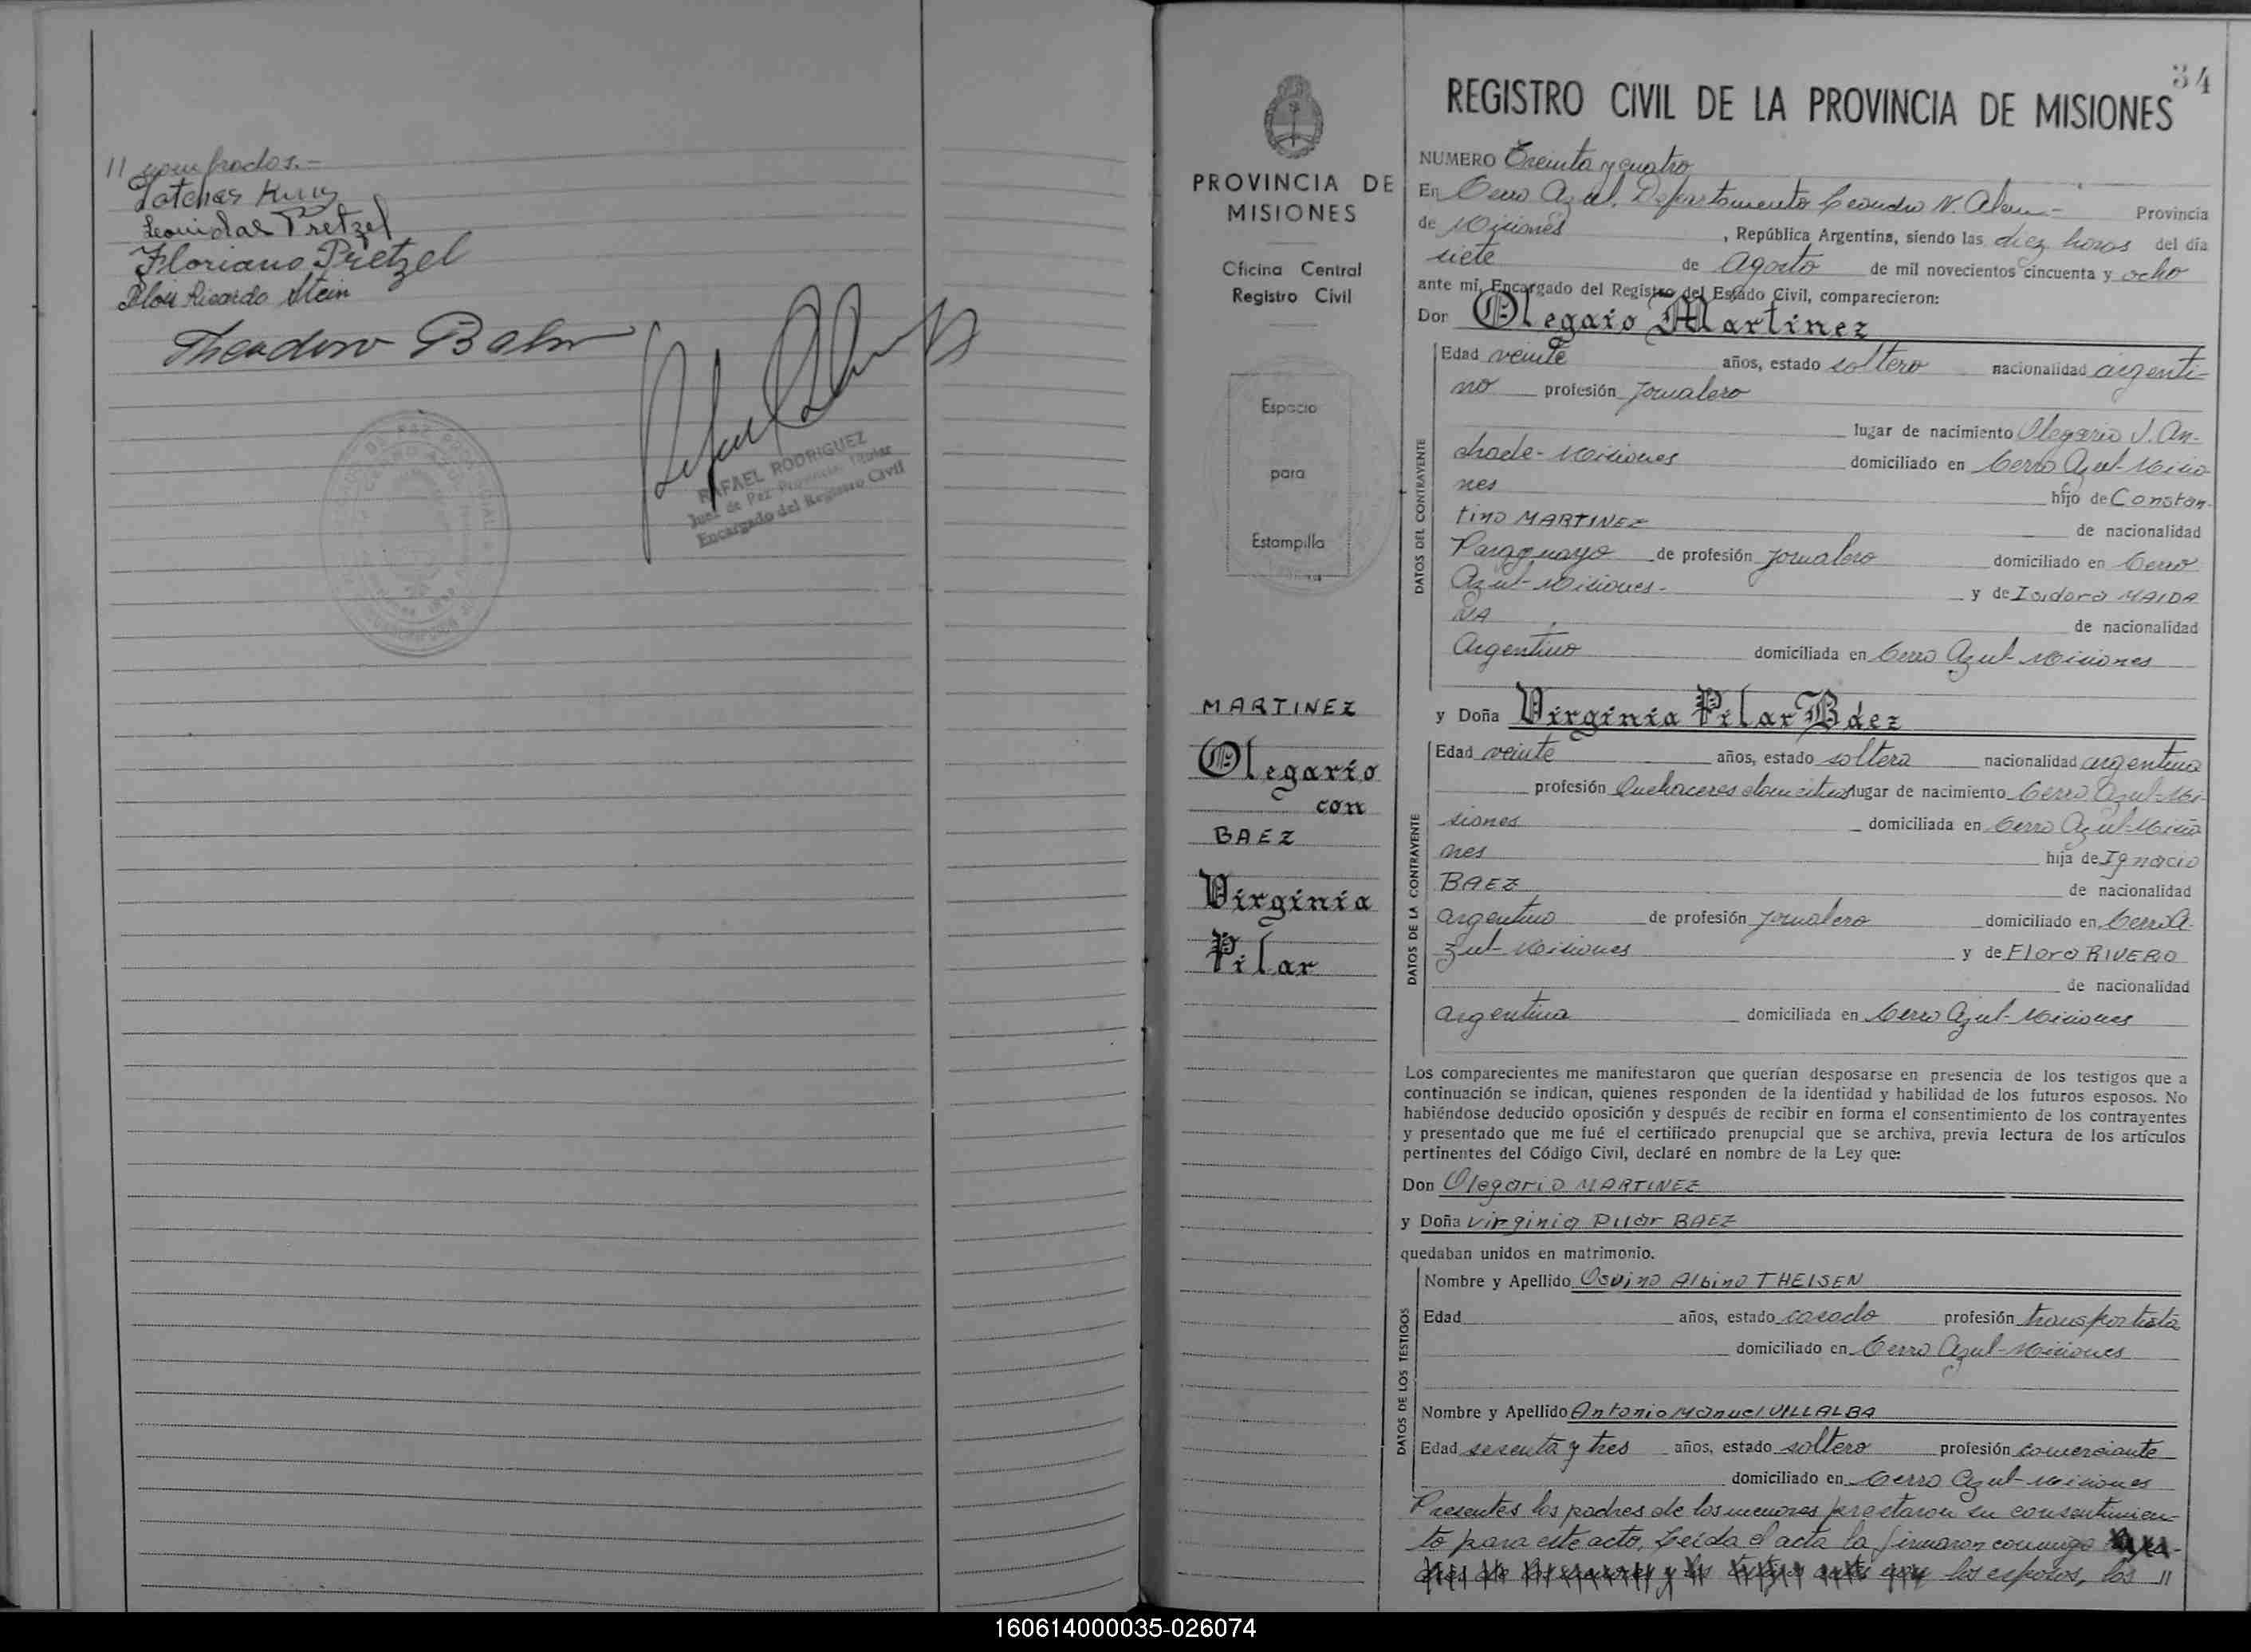 11 nombrados.-
Leonidas Pretzel
Floriano Pretzel
Ricardo Stein
Theodoro
RAFAEL RODRIGUEZ
Juez de Paz Provincia Titular
Encargado del Registro Civil
34
PROVINCIA DE
MISIONES
Oficina Central
Registro Civil
Espacio
para
Estampilla
MARTINEZ
Olegario
con
BAEZ
Virginia
Pilar
REGISTRO CIVIL DE LA PROVINCIA DE MISIONES
NUMERO Treinta y cuatro
En Cerro Azul, Departamento Leandro N. Alem- Provincia
de Misiones, República Argentina, siendo las diez horas del día
siete de Agosto de mil novecientos cincuenta y ocho
ante mí, Encargado del Registro del Estado Civil, comparecieron:
Don Olegaio Martinez
DATOS DEL CONTRAYENTE
Edad veinte años, estado soltero nacionalidad argenti-
no profesión jornalero
lugar de nacimiento Olegario V. An-
drade- Misiones domiciliado en Cerro Azul-Misio
nes hijo de Constan-
tino MARTINEZ de nacionalidad
Paraguayo de profesión jornalero domiciliado en Cerro
Azul-Misiones- y de Isidora MAIDA
NA de nacionalidad
Argentino domiciliada en Cerro Azul-Misiones
y Doña Virginia Pilar Báez
DATOS DE LA CONTRAYENTE
Edad veinte años, estado soltera nacionalidad argentina
profesión Quehaceres domesticos lugar de nacimiento Cerro Azul-Mi-
siones domiciliada en Cerro Azul-Misio
nes hija de Ignacio
BAEZ de nacionalidad
argentino de profesión jornalero domiciliado en Cerro A-
zul-Misiones y de Flora RIVERO
de nacionalidad
argentina domiciliada en Cerro Azul-Misiones
Los comparecientes me manifestaron que querían desposarse en presencia de los testigos que a
continuación se indican, quienes responden de la identidad y habilidad de los futuros esposos. No
habiéndose deducido oposición y después de recibir en forma el consentimiento de los contrayentes
y presentado que me fué el certificado prenupcial que se archiva, previa lectura de los artículos
pertinentes del Código Civil, declaré en nombre de la Ley que:
Don Olegario MARTINEZ
y Doña Virginia Pilar BAEZ
quedaban unidos en matrimonio.
DATOS DE LOS TESTIGOS
Nombre y Apellido Osvino Albino THEISEN
Edad años, estado casado profesión transportista
domiciliado en Cerro Azul-Misiones
Nombre y Apellido Antonio Manuel VILLALBA
Edad sesenta y tres años, estado soltero profesión comerciante
domiciliado en Cerro Azul-Misiones
Presentes los padres de los menores prestaron su consentimien-
to para este acto, Leida el acta la firmaron conmigo
los esposos, los 11
160614000035-026074